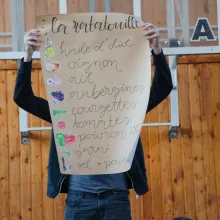 la ratatouille
huile d'olive
oignon
ail
aubergines
courgettes
tomates
poivron
garni
sel + poivre
A